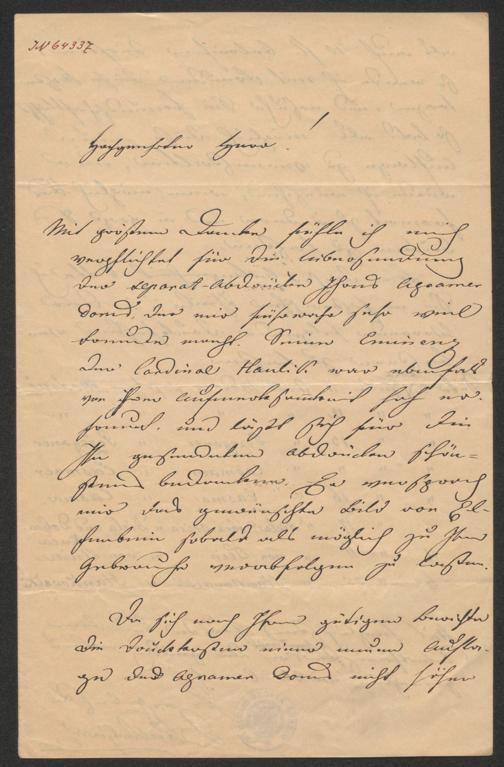 IN 64337
Hochgeehrter Herr!
Mit größtem Danke fühle ich mich
verpflichtet für die Uebersendung
der Separat-Abdrücke Ihres Agramer
Doms, der mir sehr viel
Freude macht. Seine Eminenz
der Cardinal Haulik war ebenfalls
von Ihrer Aufmerksamkeit hoch er-
freut, und läßt sich für die
Ihm gesendeten Abdrücke schön-
stens bedanken. Er versprach
mir das gewünschte Bild von El-
fenbein sobald als möglich zu Ihrem
Gebrauche verabfolgen zu lassen.
Da sich nach Ihrem gütigen Berichte
die Druckkosten einer neuen Aufla-
ge des Agramer Doms nicht höher